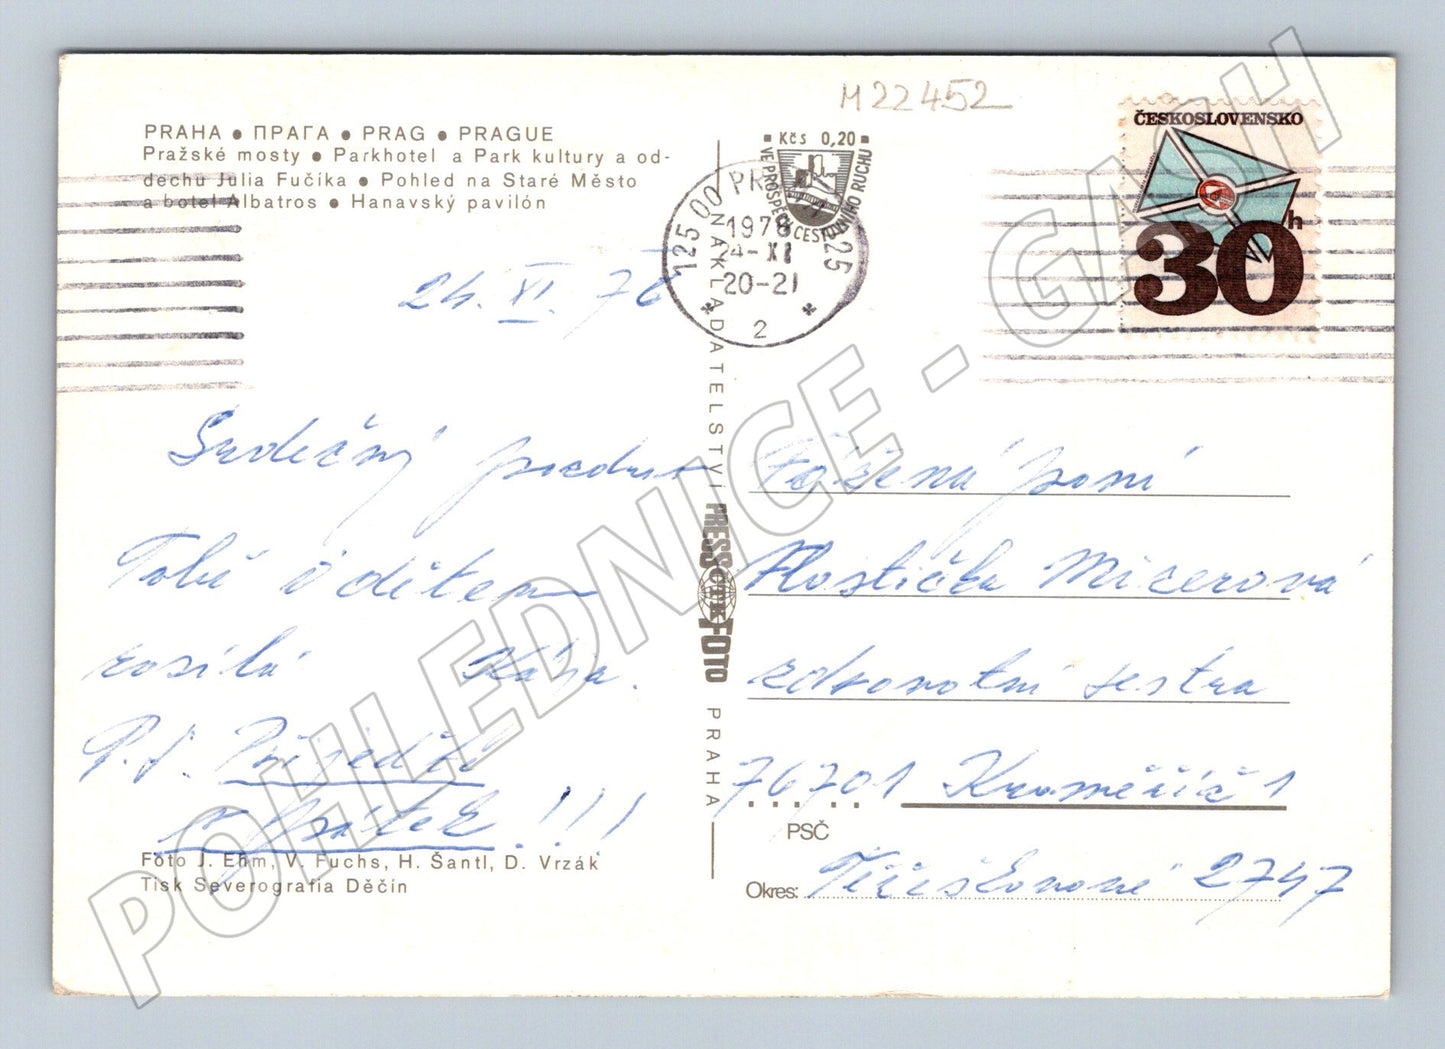 M22452
PRAHA • ПРАГА • PRAG • PRAGUE
Pražské mosty • Parkhotel a Park kultury a od-
dechu Julia Fučíka • Pohled na Staré Město
a botel Albatros • Hanavský pavilón
Kčs 0,20
VE PROSPĚCH CESTOVNÍHO RUCHU
ČESKOSLOVENSKO
30 h
125 00 PR 025
1978
24-XI
20-21
2
24. XI. 78
Srdečný pozdrav
Tobě i dětem
zasílá
P.S. Přijedu
v pátek!!!
Vážená paní
Vlastička Micerová
zdravotní sestra
76701 Kroměříž 1
PSČ
Okres:
2747
NAKLADATELSTVÍ PRESSFOTO PRAHA
ČTK
Foto J. Ehm, V. Fuchs, H. Šantl, D. Vrzák
Tisk Severografia Děčín
POHLEDNICE - GASH